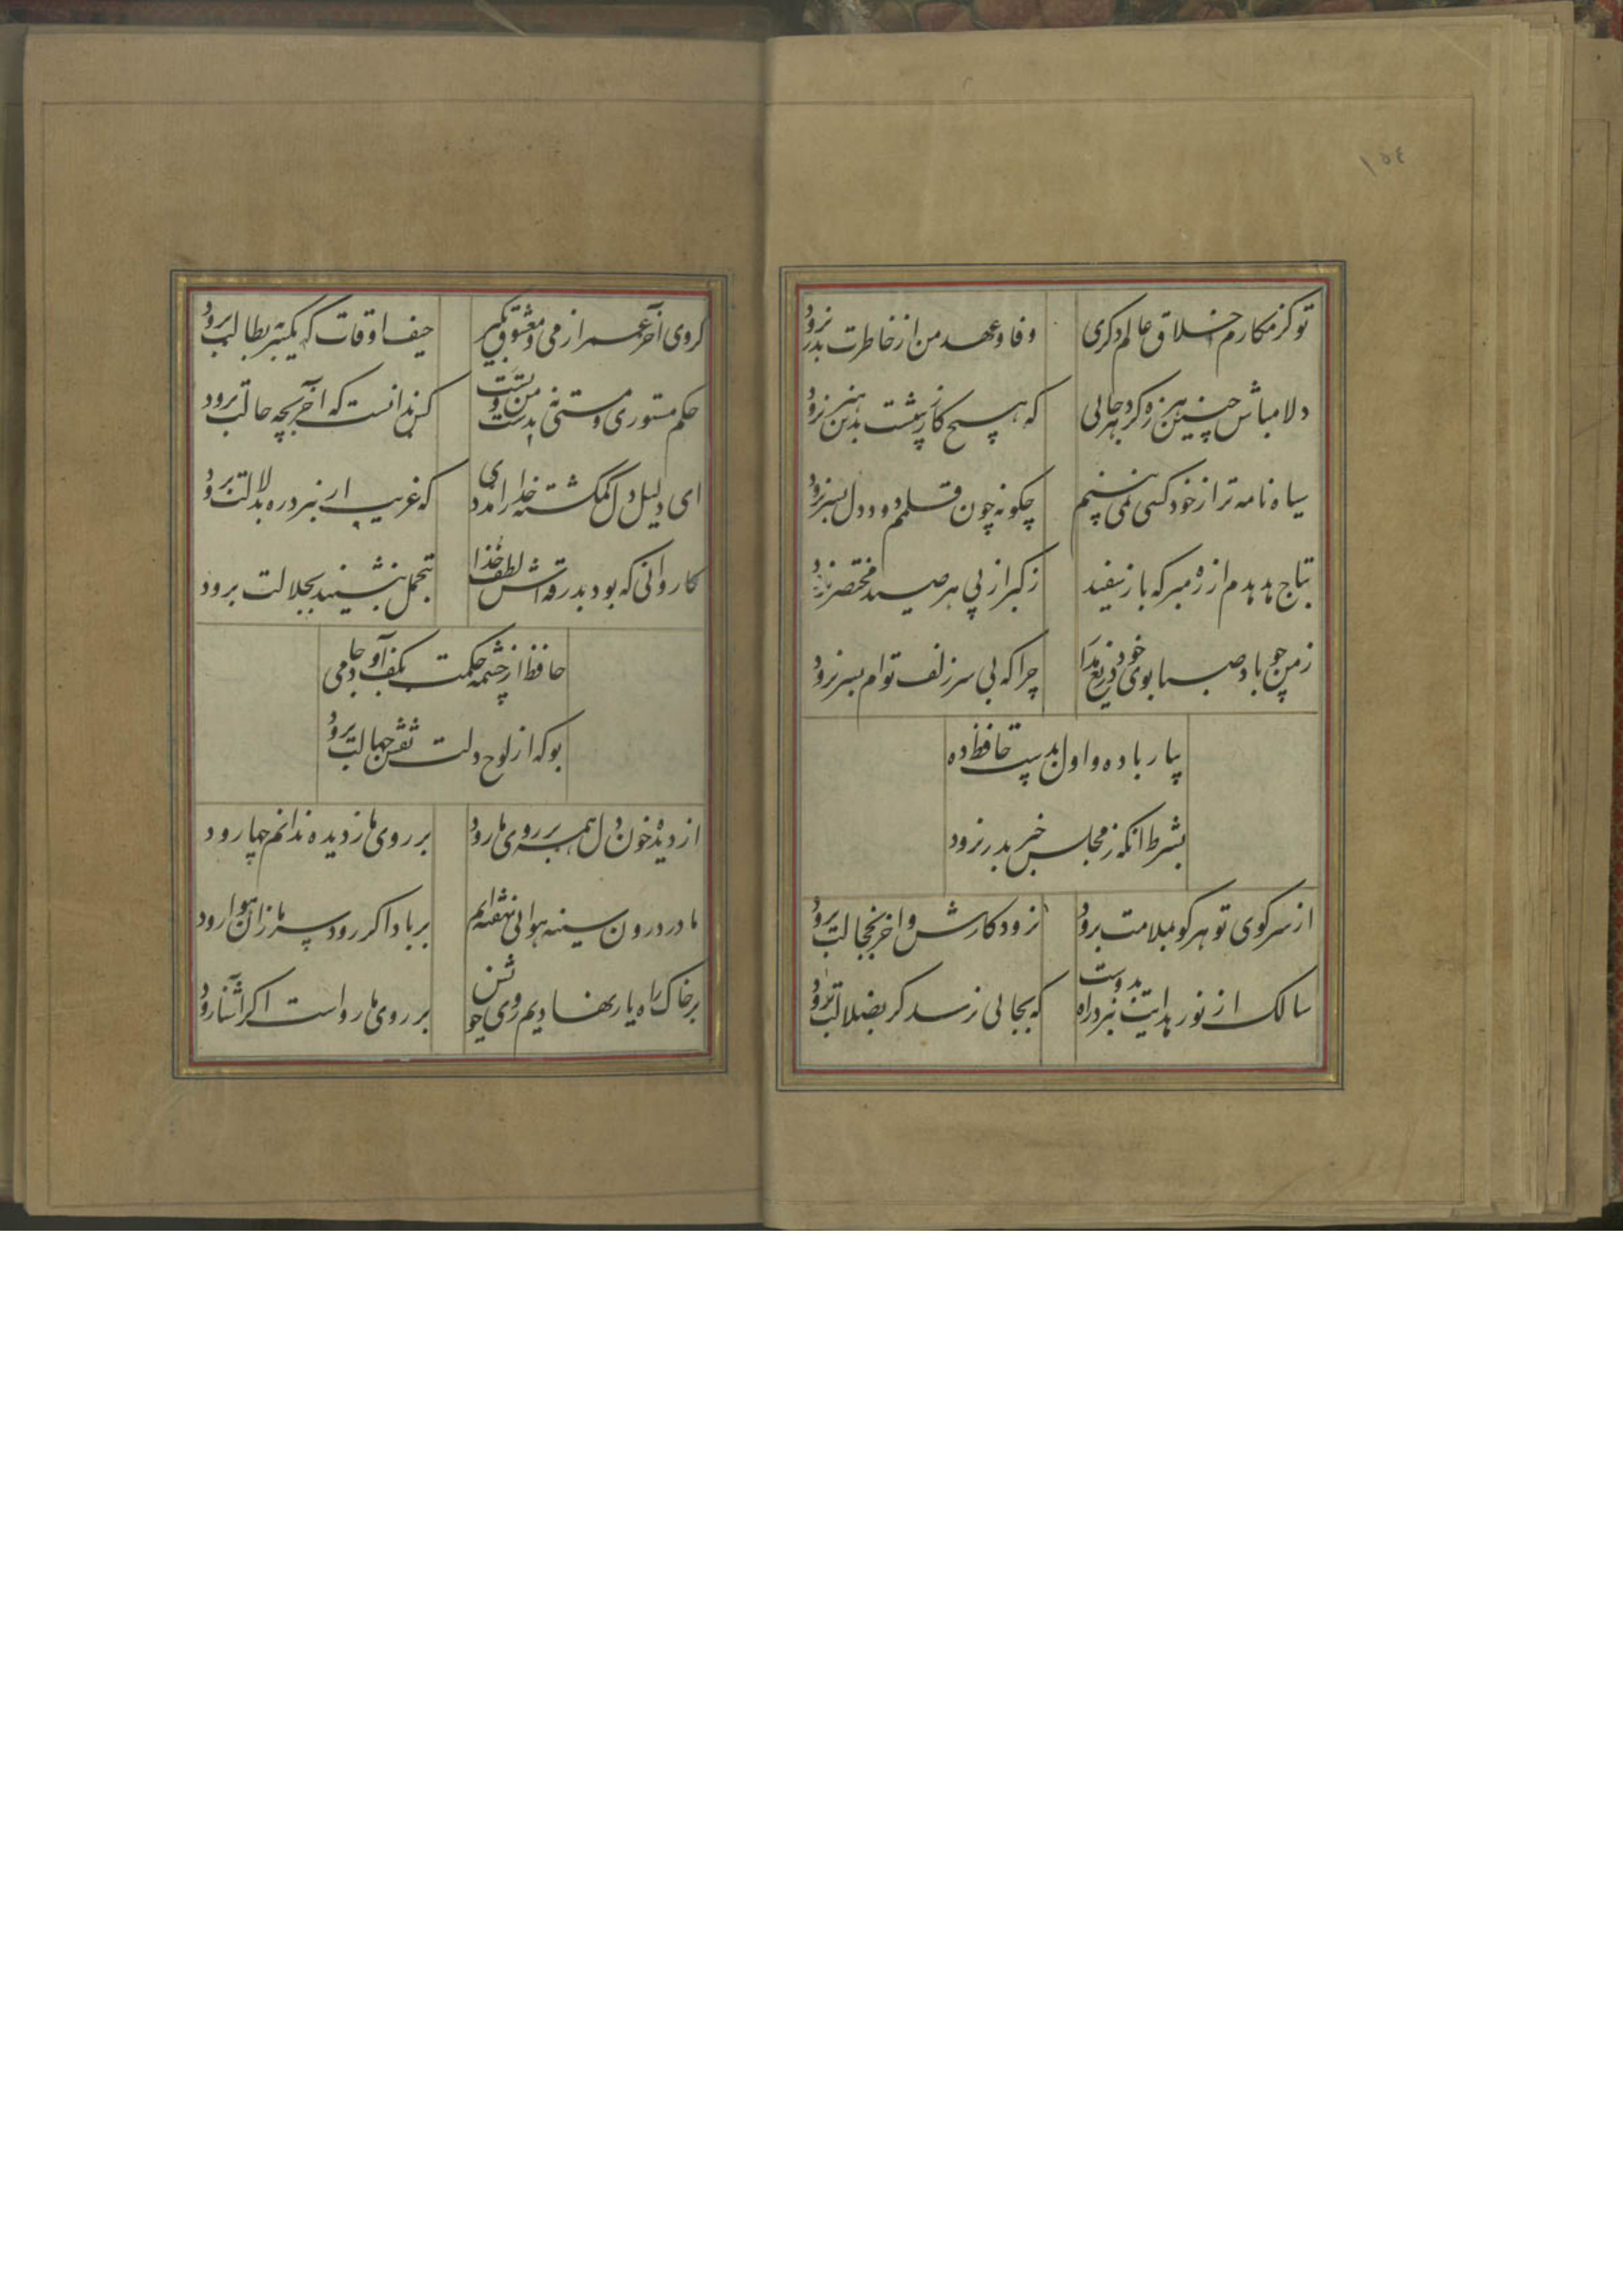 ١٥٤
تو کز مکارم اخلاق عالم دکری
وفا و عهد من از خاطرت بدر نرود
دلا مباش چنین هرزه کرد هر جایی
که هیچ کار ز پیشت بدین هنر نرود
سیاه نامه تر از خود کسی نمی بینم
چکونه چون قلمم دود دل بسر نرود
بتاج هدهدم از ره مبر که باز سفید
ز کبر از پی هر صید مختصر نرود
ز من چو باد صبا بوی خود دریغ مدار
چرا که بی سر زلف توام بسر نرود
بیار باده و اول بدست حافظ ده
بشرط انکه ز مجلس خبر بدر نرود
از سر کوی تو هر کو بملامت برود
نرود کارش و آخر بخجالت برود
سالک از نور هدایت ببرد راه بدوست
که بجایی نرسد کر بضلالت برود
کروی آخر عمر از می و معشوق بکیر
حیف اوقات که یکسر ببطالت برود
حکم مستوری و مستی نه بدست من و تست
کس ندانست که آخر بچه حالت برود
ای دلیل دل کمکشته خدا را مددی
که غریب ار نبرد ره بدلالت برود
کاروانی که بود بدرقه اش لطف خدا
بتجمل بنشیند بجلالت برود
حافظ از چشمه حکمت بکف آور جامی
بو که از لوح دلت نقش جهالت برود
از دیده خون دل همه بر روی ما رود
بر روی ما ز دیده ندانم چها رود
ما در درون سینه هوایی نهفته ایم
بر باد اکر رود سر ما زان هوا رود
بر خاک راه یار نهادیم روی خویش
بر روی ما رواست اکر آشنا رود